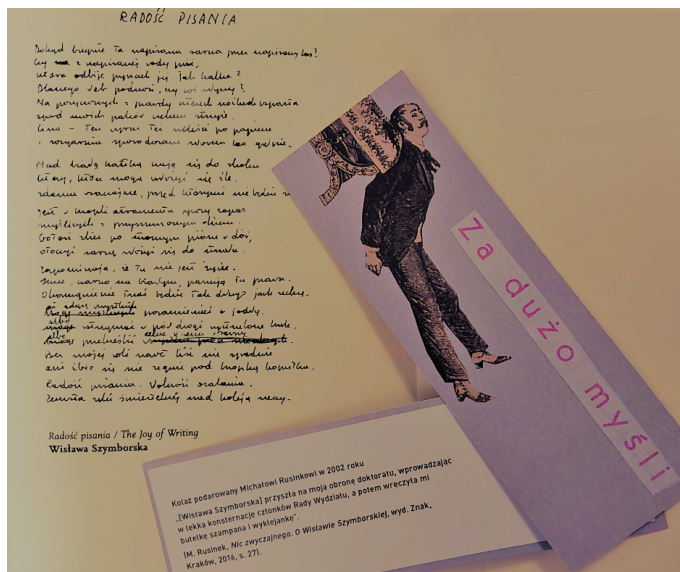 RADOŚĆ PISANIA
Dokąd biegnie ta napisana sarna przez napisany las?
Czy z napisanej wody pić,
która odbije pyszczek jej jak kalka?
Dlaczego łeb podnosi, czy coś słyszy?
Na pożyczonych z prawdy czterech nóżkach wsparta
spod moich palców uchem strzyże.
Cisza – Ten wyraz też szeleści po papierze
i rozgarnia spowodowane słowem las gałęzie.
Nad białą kartką czają się do skoku
litery, które mogą ułożyć się źle,
zdania osaczające, przed którymi nie będzie
Jest w kropli atramentu spory zapas
myśliwych z przymrużonym okiem.
Gotowi zbiec po stromym piórze w dół,
otoczyć sarnę, złożyć się do strzału.
Zapominają, że tu nie jest życie.
Inne, czarno na białym, panują tu prawa.
Okamgnienie trwać będzie tak długo jak zechcę.
pozamieniać w
albo wstrzymać w pół drogi wystrzelone kule.
albo
Bez mojej woli nawet liść nie spadnie
ani źdźbło się nie zegnie pod kropką kopytka.
Radość pisania. Możność ocalania.
Zemsta ręki śmiertelnej nad koleją
Radość pisania / The Joy of Writing
Wisława Szymborska
Za dużo myśli
Kolaż podarowany Michałowi Rusinkowi w 2002 roku
„[Wisława Szymborska] przyszła na moją obronę doktoratu, wprowadzając
w lekką konsternację członków Rady Wydziału, a potem wręczyła mi
butelkę szampana i wyklejankę".
[M. Rusinek, Nic zwyczajnego. O Wisławie Szymborskiej, wyd. Znak,
Kraków, 2016, s. 27].